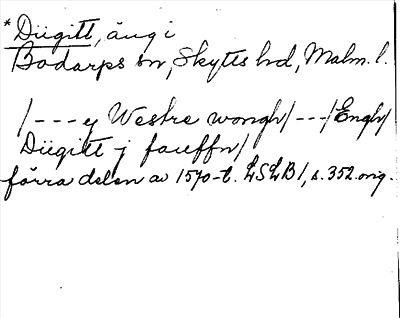 *Düigitt, äng i
Bodarps sn, Skytts hd, Malm. l.
/---y Westre wongh/---/Engh/
Düigitt j faueffn/
förra delen av 1570-t. LSLB 1, s. 352. orig.